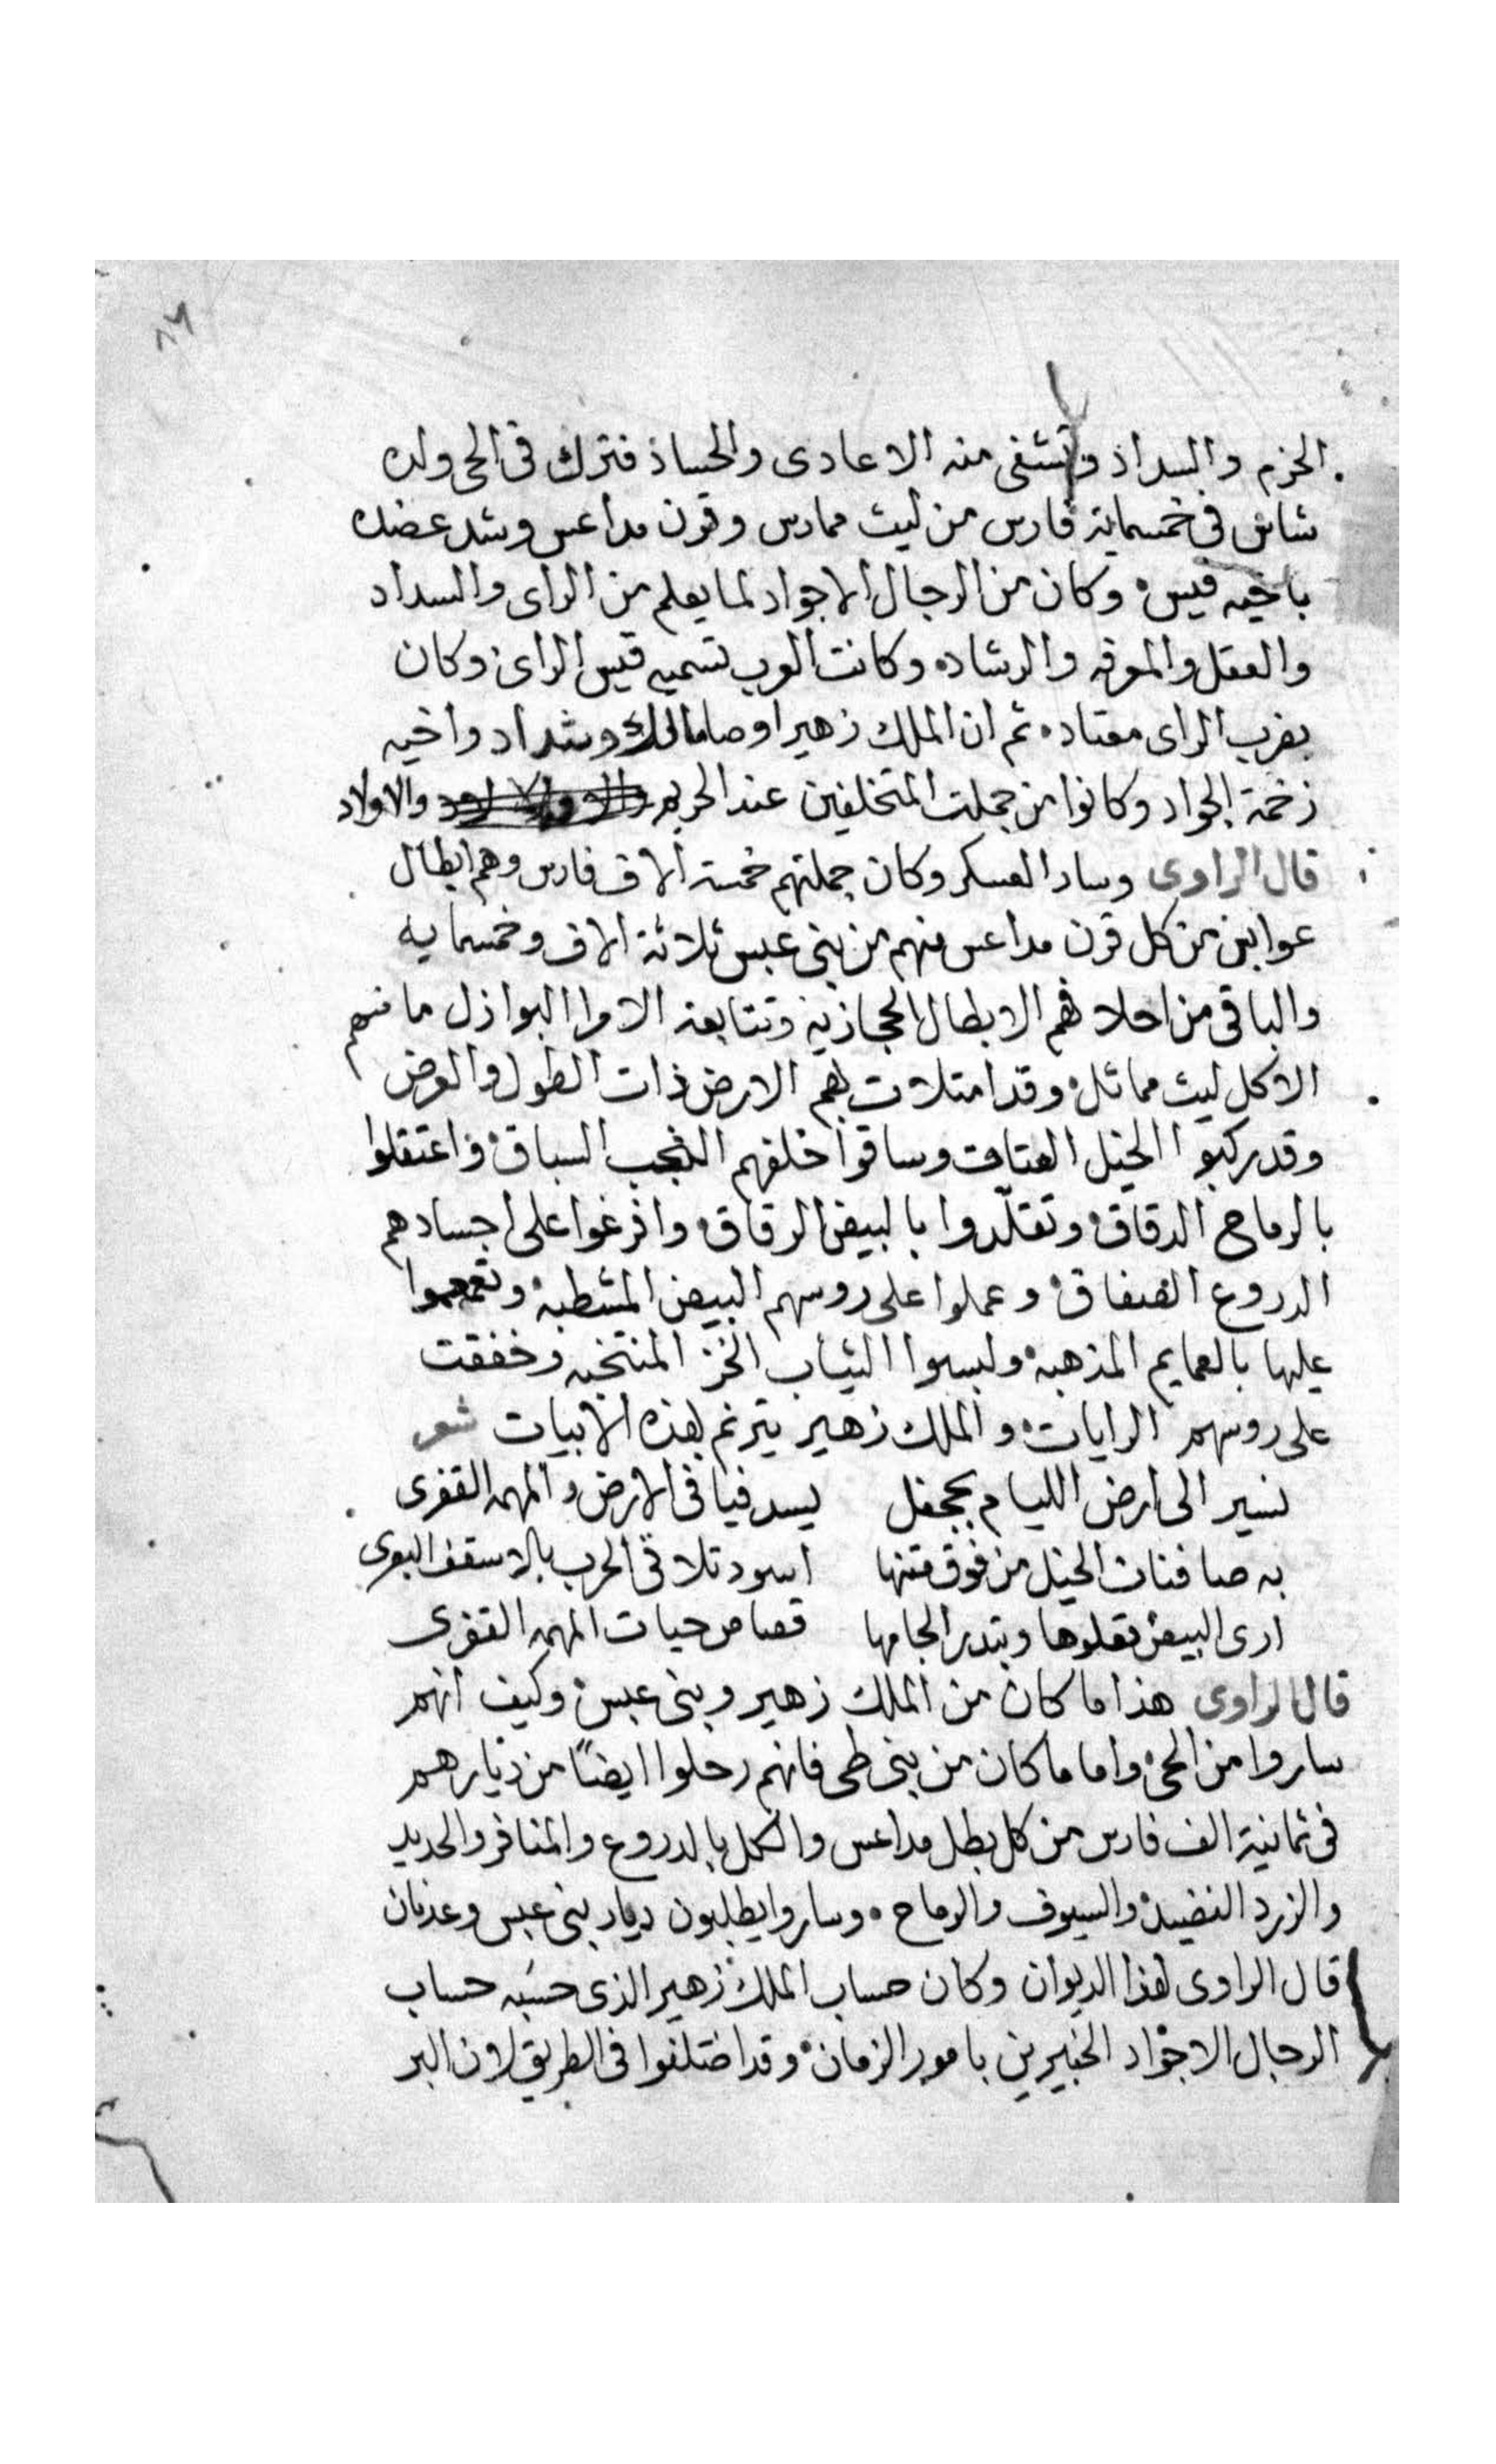 ٨٦
الحزم والسداد وتشفى منه الاعادى والحساد فترك فى الحى ولده
شاس فى خمسماية فارس من ليث ممارس وقرن مداعس وشد عضده
باخيه قيس وكان من الرجال الاجواد لما يعلم من الراى والسداد
والعقل والمعرفه والرشاده وكانت العرب تسميه قيس الراى وكان
بضرب الراى معتاد ثم ان الملك زهير اوصا مالك وشداد واخيه
زخمة الجواد وكانوا من جملت المتخلفين عند الحريم والاولاد
قال الراوى وسار العسكر وكان جملتهم خمسة الاف فارس وهم ابطال
عوابس من كل قرن مداعس منهم من بنى عبس ثلاثة الاف وخمسمايه
والباقى من احلافهم الابطال الحجازيه وتتابعة الامرا البوازل ما منهم
الا كل ليث مماثل وقد امتلات بهم الارض ذات الطول والعرض
وقد ركبوا الخيل العتاق وساقوا خلفهم النجب السباق واعتقلوا
بالرماح الدقاق وتقلّدوا بالبيض الرقاق وافرغوا على اجسادهم
الدروع الضفاق وعملوا على روسهم البيض المشطبه وتعمموا
عليها بالعمايم المذهبه ولبسوا الثياب الخز المنتخبه وخفقت
على روسهم الرايات والملك زهير يترنم بهذه الابيات شعر
نسير الى ارض الليام بجحفل يسد فيافى الارض والمهمه القفرى
به صافنات الخيل من فوق متنها اسود تلاقى الحرب بالاسقف البوى
ارى البيض تعلوها وتبدر الجامها قصا من حيات المهمه القفرى
قال الراوى هذا ما كان من الملك زهير وبنى عبس وكيف انهم
ساروا من الحى واما ما كان من بنى طى فانهم رحلوا ايضًا من ديارهم
فى ثمانية الف فارس من كل بطل مداعس والكل بالدروع والمغافر والحديد
والزرد النضيد والسيوف والرماح وساروا يطلبون ديار بنى عبس وعدنان
قال الراوى لهذا الديوان وكان حساب الملك زهير الذى حسبه حساب
الرجال الاجواد الخبيرين بامور الزمان وقد اختلفوا فى الطريق لان البر